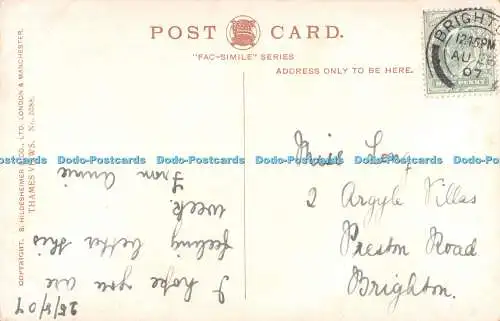 POST CARD.
"FAC-SIMILE" SERIES
ADDRESS ONLY TO BE HERE.
BRIGHT
12.15PM
AU 26
07
COPYRIGHT. S. HILDESHEIMER & CO., LTD. LONDON & MANCHESTER.
THAMES VIEWS. No. 5088.
25/8/07
I hope you are
feeling better this
week.
From Annie
Miss Long
2 Argyle Villas
Preston Road
Brighton.
Dodo-Postcards Dodo-Postcards Dodo-Postcards Dodo-Postcards Dodo-Postcards Dodo-Postcards